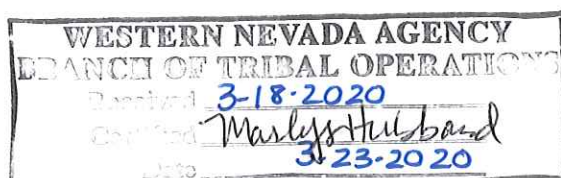 WESTERN NEVADA AGENCY
BRANCH OF TRIBAL OPERATIONS
Received 3-18-2020
Certified Marlys Hubbard
Date 3-23-2020